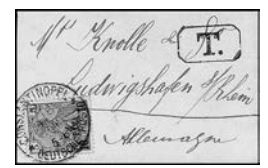 Mr Knolle
T.
Ludwigshafen s/Rhein
Allemagne
CONSTANTINOPEL
DEUTSCHE